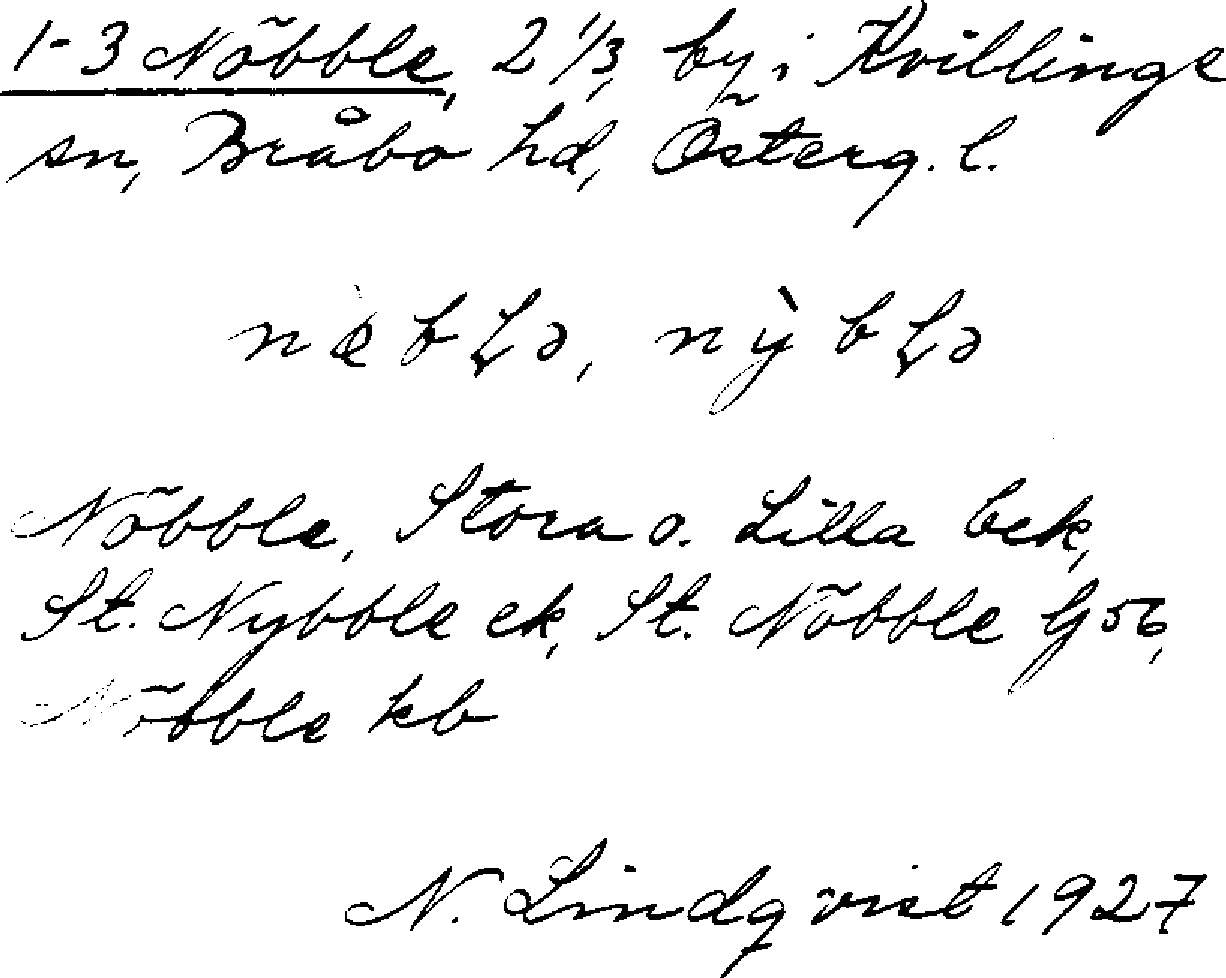 1-3 Nöbble, 2 1/3, by i Kvillinge
sn, Bråbo hd, Österg. l.
nybble kb
Nöbble, Stora o. Lilla bek,
St. Nybble ek, St. Nöbble G56,
Nöbble kb
N. Lindqvist 1927